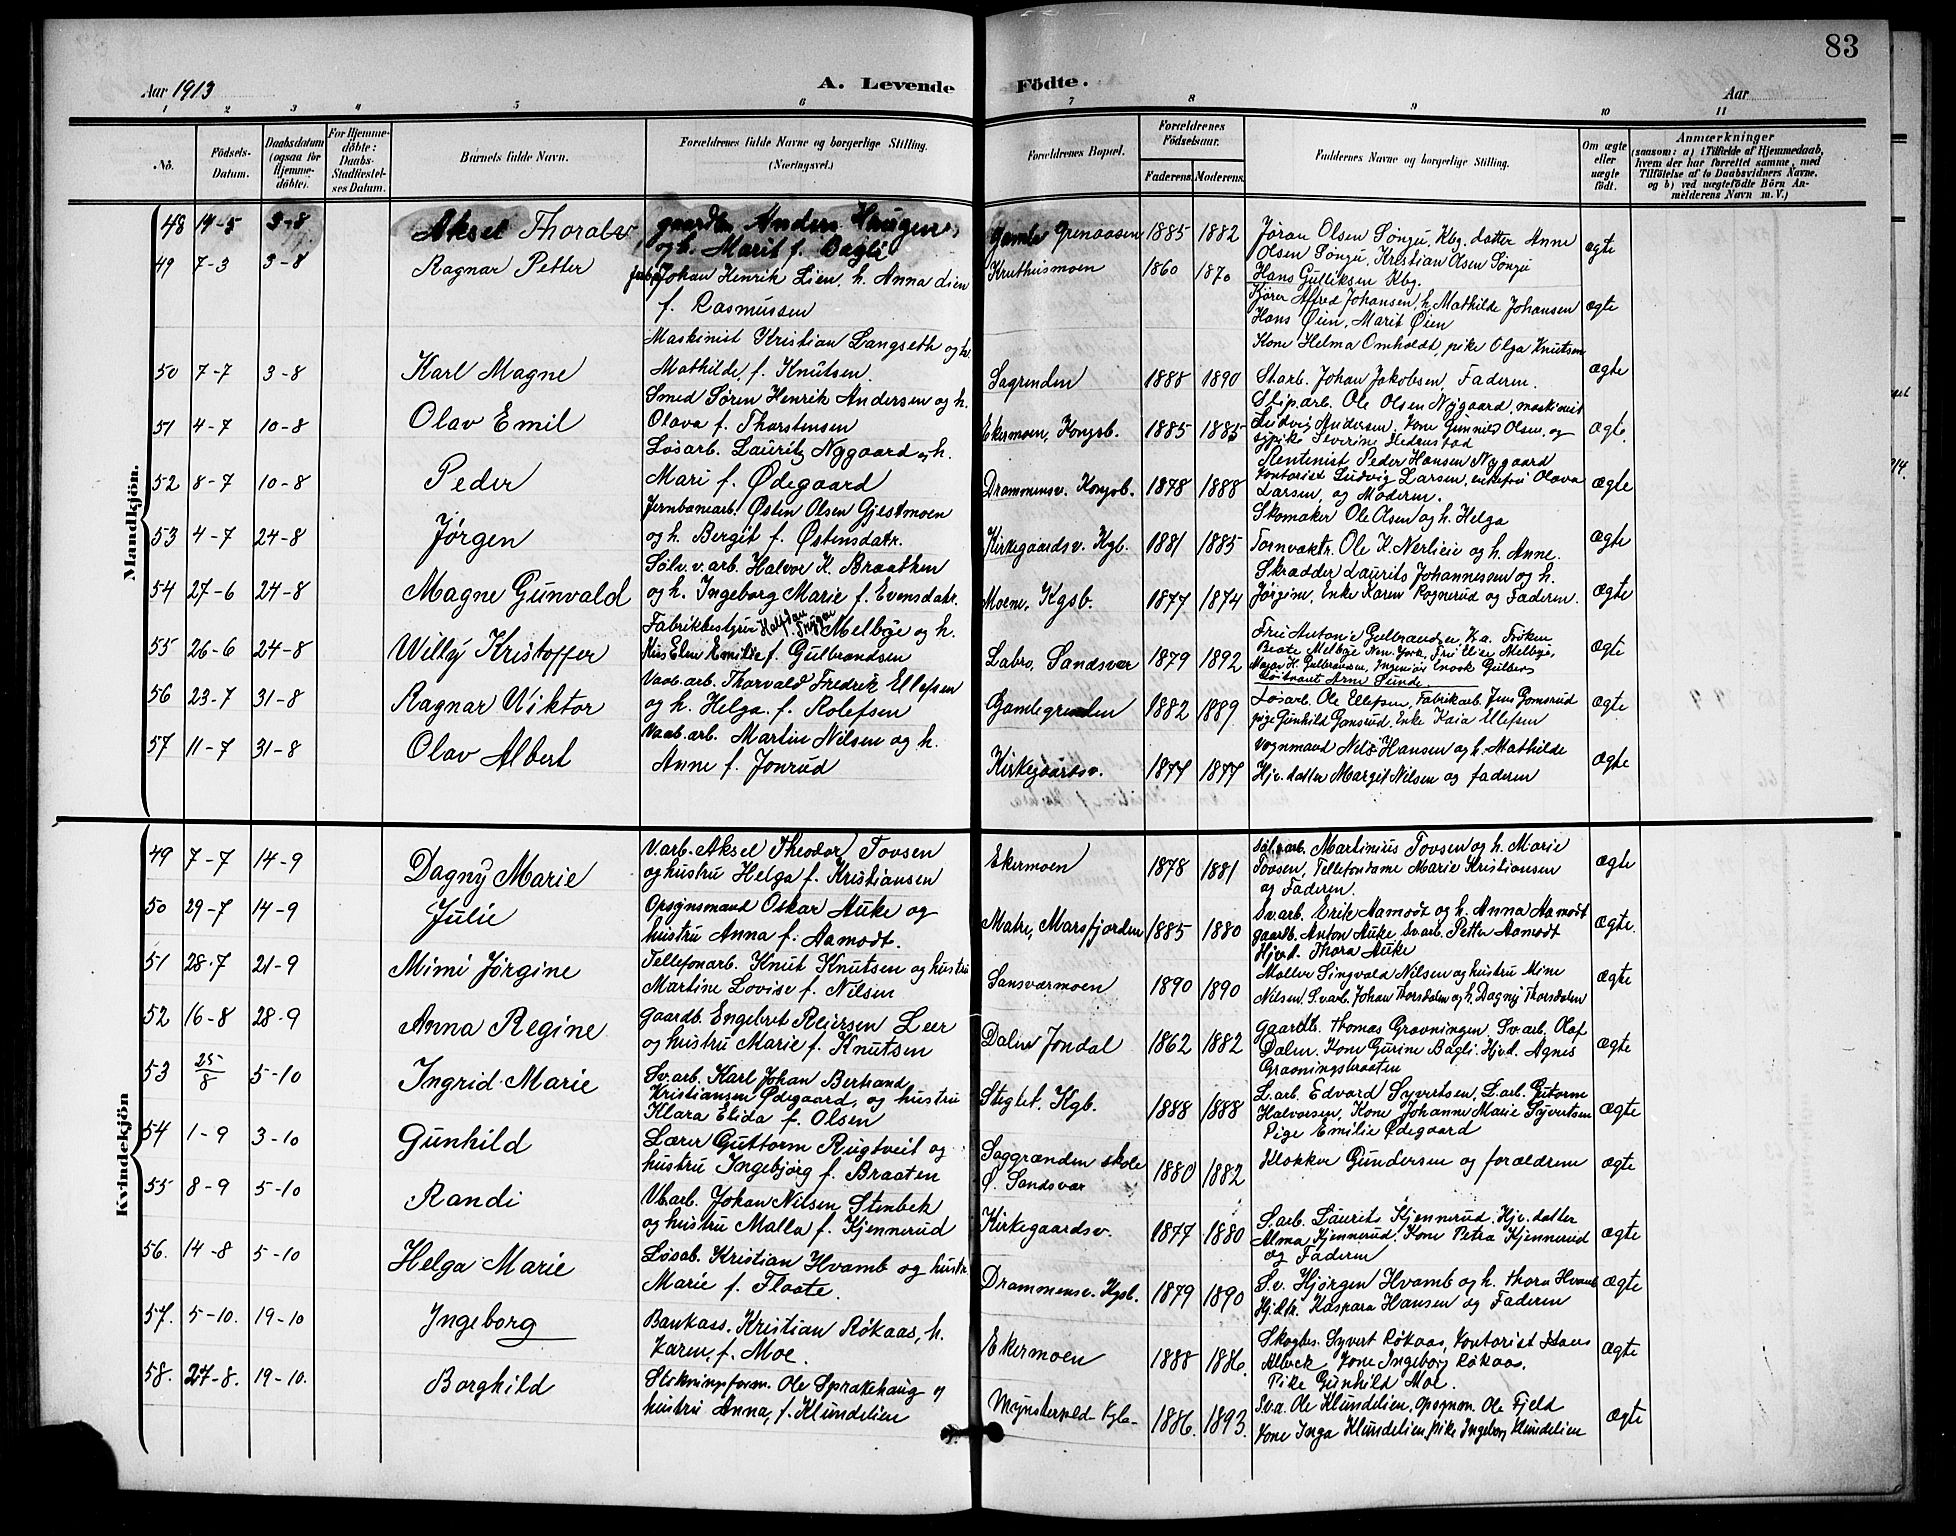 83
Aar 1913
A. Levende Födte.
Aar
1 2 3 4 5 6 7 8 9 10 11
Nô. Födsels-Datum. Daabsdatum (ogsaa for Hjemme-döbte). For Hjemme-döbte: Daabs-Stadfæstel-ses Datum. Barnets fulde Navn. Forældrenes fulde Navne og borgerlige Stilling. (Næringsvei.) Forældrenes Bopæl. Forældrenes Födselsaar. Faderens. Moderens. Faddernes Navne og borgerlige Stilling. Om ægte eller uægte födt. Anmærkninger (saasom: a) i Tilfælde af Hjemmedaab, hvem der har forrettet samme, med Tilföielse af to Daabsvidners Navne, og b) ved uægtefödte Börn An-melderens Navn m. V.)
Mandkjön.
48 14-5 3-8 Aksel Thoralv gaardbr. Anders Haugen og h. Marit f. Bagli Gamle Grenaasen 1885 1882 Jöran Olsen Söngu, Kbg. datter Anne Olsen Söngu, Kristian Olsen Söngu Hans Gulliksen Kbg. ægte
49 7-3 3-8 Ragnar Petter Johan Henrik Lien, h. Anna Lien f. Rasmussen Kruthusmoen 1860 1870 Kjører Alfred Johansen, h. Mathilde Johansen Hans Øien, Marit Øien ægte
50 7-7 3-8 Karl Magne Maskinist Kristian Langseth og h. Mathilde, f. Knutsen. Sagrenden 1888 1890 Kone Helma Omholdt, pike Olga Knutsen St.arb. Johan Jakobsen, Faderen. ægte
51 4-7 10-8 Olav Emil Smed Sören Henrik Andersen og h. Olava f. Thorstensen Ekermoen, Kongsb. 1885 1885 Slip.arb. Ole Olsen Nygaard, maskinist Ludvig Andersen, Kone Gunnild Olsen, og pike Severine Hedenstad ægte.
52 8-7 10-8 Peder Løsarb. Laurits Nygaard og h. Mari f. Ødegaard Drammensv. Kongsb. 1878 1888 Rentenist Peder Hansen Nygaard Kontorist Ludvig Larsen, enkefru Olava Larsen, og Moderen. ægte
53 4-7 24-8 Jørgen Jernbanearb. Østen Olsen Gjestmoen og h. Bergit f. Østensdatr. Kirkegaardsv. Kgb. 1881 1885 Skomaker Ole Olsen og h. Helga Tornvaktr. Ole K. Nerlieie og h. Anne. ægte
54 27-6 24-8 Magne Gunvald Sölv.v.arb. Halvor K. Braathen og h. Ingeborg Marie f. Evensdatr. Moene, Kgsb. 1877 1874 Skrædder Laurits Johannessen og h. Jørgine, Enke Karen Rognerud og Faderen. ægte
55 26-6 24-8 Willy Kristoffer Fabrikbestyrer Halfdan Trygve Melbye og h. Elen Emilie f. Gulbrandsen Labro, Sandsvær 1879 1892 Fru Antonie Gulbrandsen Frøken Beate Melbye New York, Fru Elise Melbye, Major H. Gulbrandsen, Ingeniør Enock Gulbr. Løitnant Arne Sunde. ægte
56 23-7 31-8 Ragnar Viktor Vaab.arb. Thorvald Fredrik Ellefsen og h. Helga f. Rolefsen Gamlegrenden 1882 1889 Løsarb. Ole Ellefsen, Fabrikarb. Jens Gomsrud pige Gunhild Gomsrud, Enke Kaia Ellefsen ægte
57 11-7 31-8 Olav Albert Vaab.arb. Martin Nilsen og h. Anne f. Jonrud Kirkegaardsv. 1877 1877 Vognmand Nils Hansen og h. Mathilde Hjv. datter Margit Nilsen og faderen ægte
Kvindekjön
49 7-7 14-9 Dagny Marie V.arb. Aksel Theodor Tovsen og hustru Helga f. Kristiansen Ekermoen 1878 1881 Sølv.arb. Martinius Tovsen og h. Marie Tovsen, Tellefondame Marie Kristiansen og Faderen. ægte
50 29-7 14-9 Julie Opsynsmand Oskar Auke og hustru Anna f. Aamodt. Matre, Marsfjorden 1885 1880 Sv.arb. Erik Aamodt og h. Anna Aamodt gaardb. Anton Auke Sv.arb. Petter Aamodt Hjv.d. Thora Auke ægte.
51 28-7 21-9 Mimi Jørgine Tellefonarb. Knut Knutsen og hustru Martine Lovise f. Nilsen Sansværmoen 1890 1890 Møller Singvald Nilsen og hustru Mine Nilsen. S.varb. Johan Thorsdalen og h. Dagny Thorsdalen ægte
52 16-8 28-9 Anna Regine Gaardb. Engebret Reiersen Leer og hustru Marie f. Knutsen Dalen Jondal 1862 1882 Gaardb. Thomas Gravningen, Sv.arb. Olaf Dalen, Kone Gurine Bagli Hjv.d. Agnes Gravningsbraaten ægte
53 25/8 5-10 Ingrid Marie Sv.arb. Karl Johan Bertrand Kristiansen Ødegaard, og hustru Klara Elida f. Olsen Steglet. Kgb. 1888 1888 L.arb. Edvard Syvertsen, L.arb. Guttorm Halvorsen, Kone Johanne Marie Syvertsen Pige Emilie Ødegaard ægte
54 1-9 3-10 Gunhild Lærer Guttorm Rugtveit og hustru Ingebjørg f. Braaten Saggrænden skole Ø. Sandsvær 1880 1882 Klokker Gundersen og forældrene ægte
55 8-9 5-10 Randi Vb.arb. Johan Nilsen Stenbek og hustru Malla f. Kjennerud Kirkegaardsv. 1877 1880 S.arb. Laurits Kjennerud. Hjv. datter Alma Kjennerud, Kone Petra Kjennerud og Faderen ægte
56. 14-8 5-10 Helga Marie Løsab. Kristian Hvamb og hustr. Marie f. Floate. Drammensv. Kgsb. 1879 1890 S.v. Hjørgen Hvamb og h. Thora Hvamb Hj.dtr. Kaspara Hansen og Faderen ægte
57. 5-10. 19-10 Ingeborg Bankass. Kristian Røkaas, h. Karen, f. Moe. Ekermoen 1888 1886. Skogbes. Syvert Røkaas, Kontorist Hans Albeck, Kone Ingeborg Røkaas. Pike Gunhild Moe. ægte
58. 27-8. 19-10. Borghild Stikningsform. Ole Sprakehaug og hustru Anna, f. Klundelien Mynsterpld. Kgb. 1886. 1893. Sv.a. Ole Klundelien, Opsynsm. Ole Fjeld Kone Inga Klundelien, Pike Ingeborg Klundelien ægte